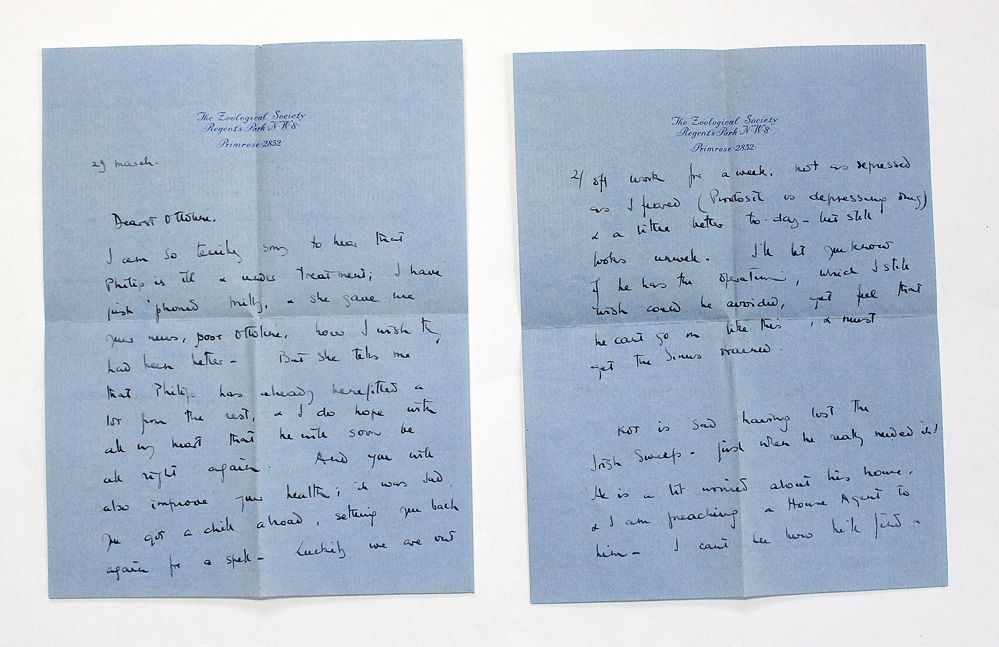 The Zoological Society
Regent's Park · N·W·8·
Primrose·2832
29 March.
Dearest Ottoline.
I am so terribly sorry to hear that
Philip is ill & under treatment; I have
just 'phoned Milly, & she gave me
your news, poor Ottoline, how I wish they
had been better – But she tells me
that Philip has already benefitted a
lot from the rest, & I do hope with
all my heart that he will soon be
all right again. And you will
also improve your health; it was sad
you got a chill abroad, setting you back
again for a spell – Luckily we are out
The Zoological Society
Regent's Park · N·W·8·
Primrose·2832·
2/ off work for a week. not as depressed
as I feared (Prontosil is depressing drug)
& a little better to-day – but still
looks unwell. I'll let you know
if he has the operation, which I still
wish could be avoided, yet feel that
he can't go on like this, & must
get the Sinus drained.
Kot is sad having lost the
Irish Sweep – just when he really needed it!
He is a bit worried about his house,
& I am preaching a House Agent to
him – I can't see how he'll find –